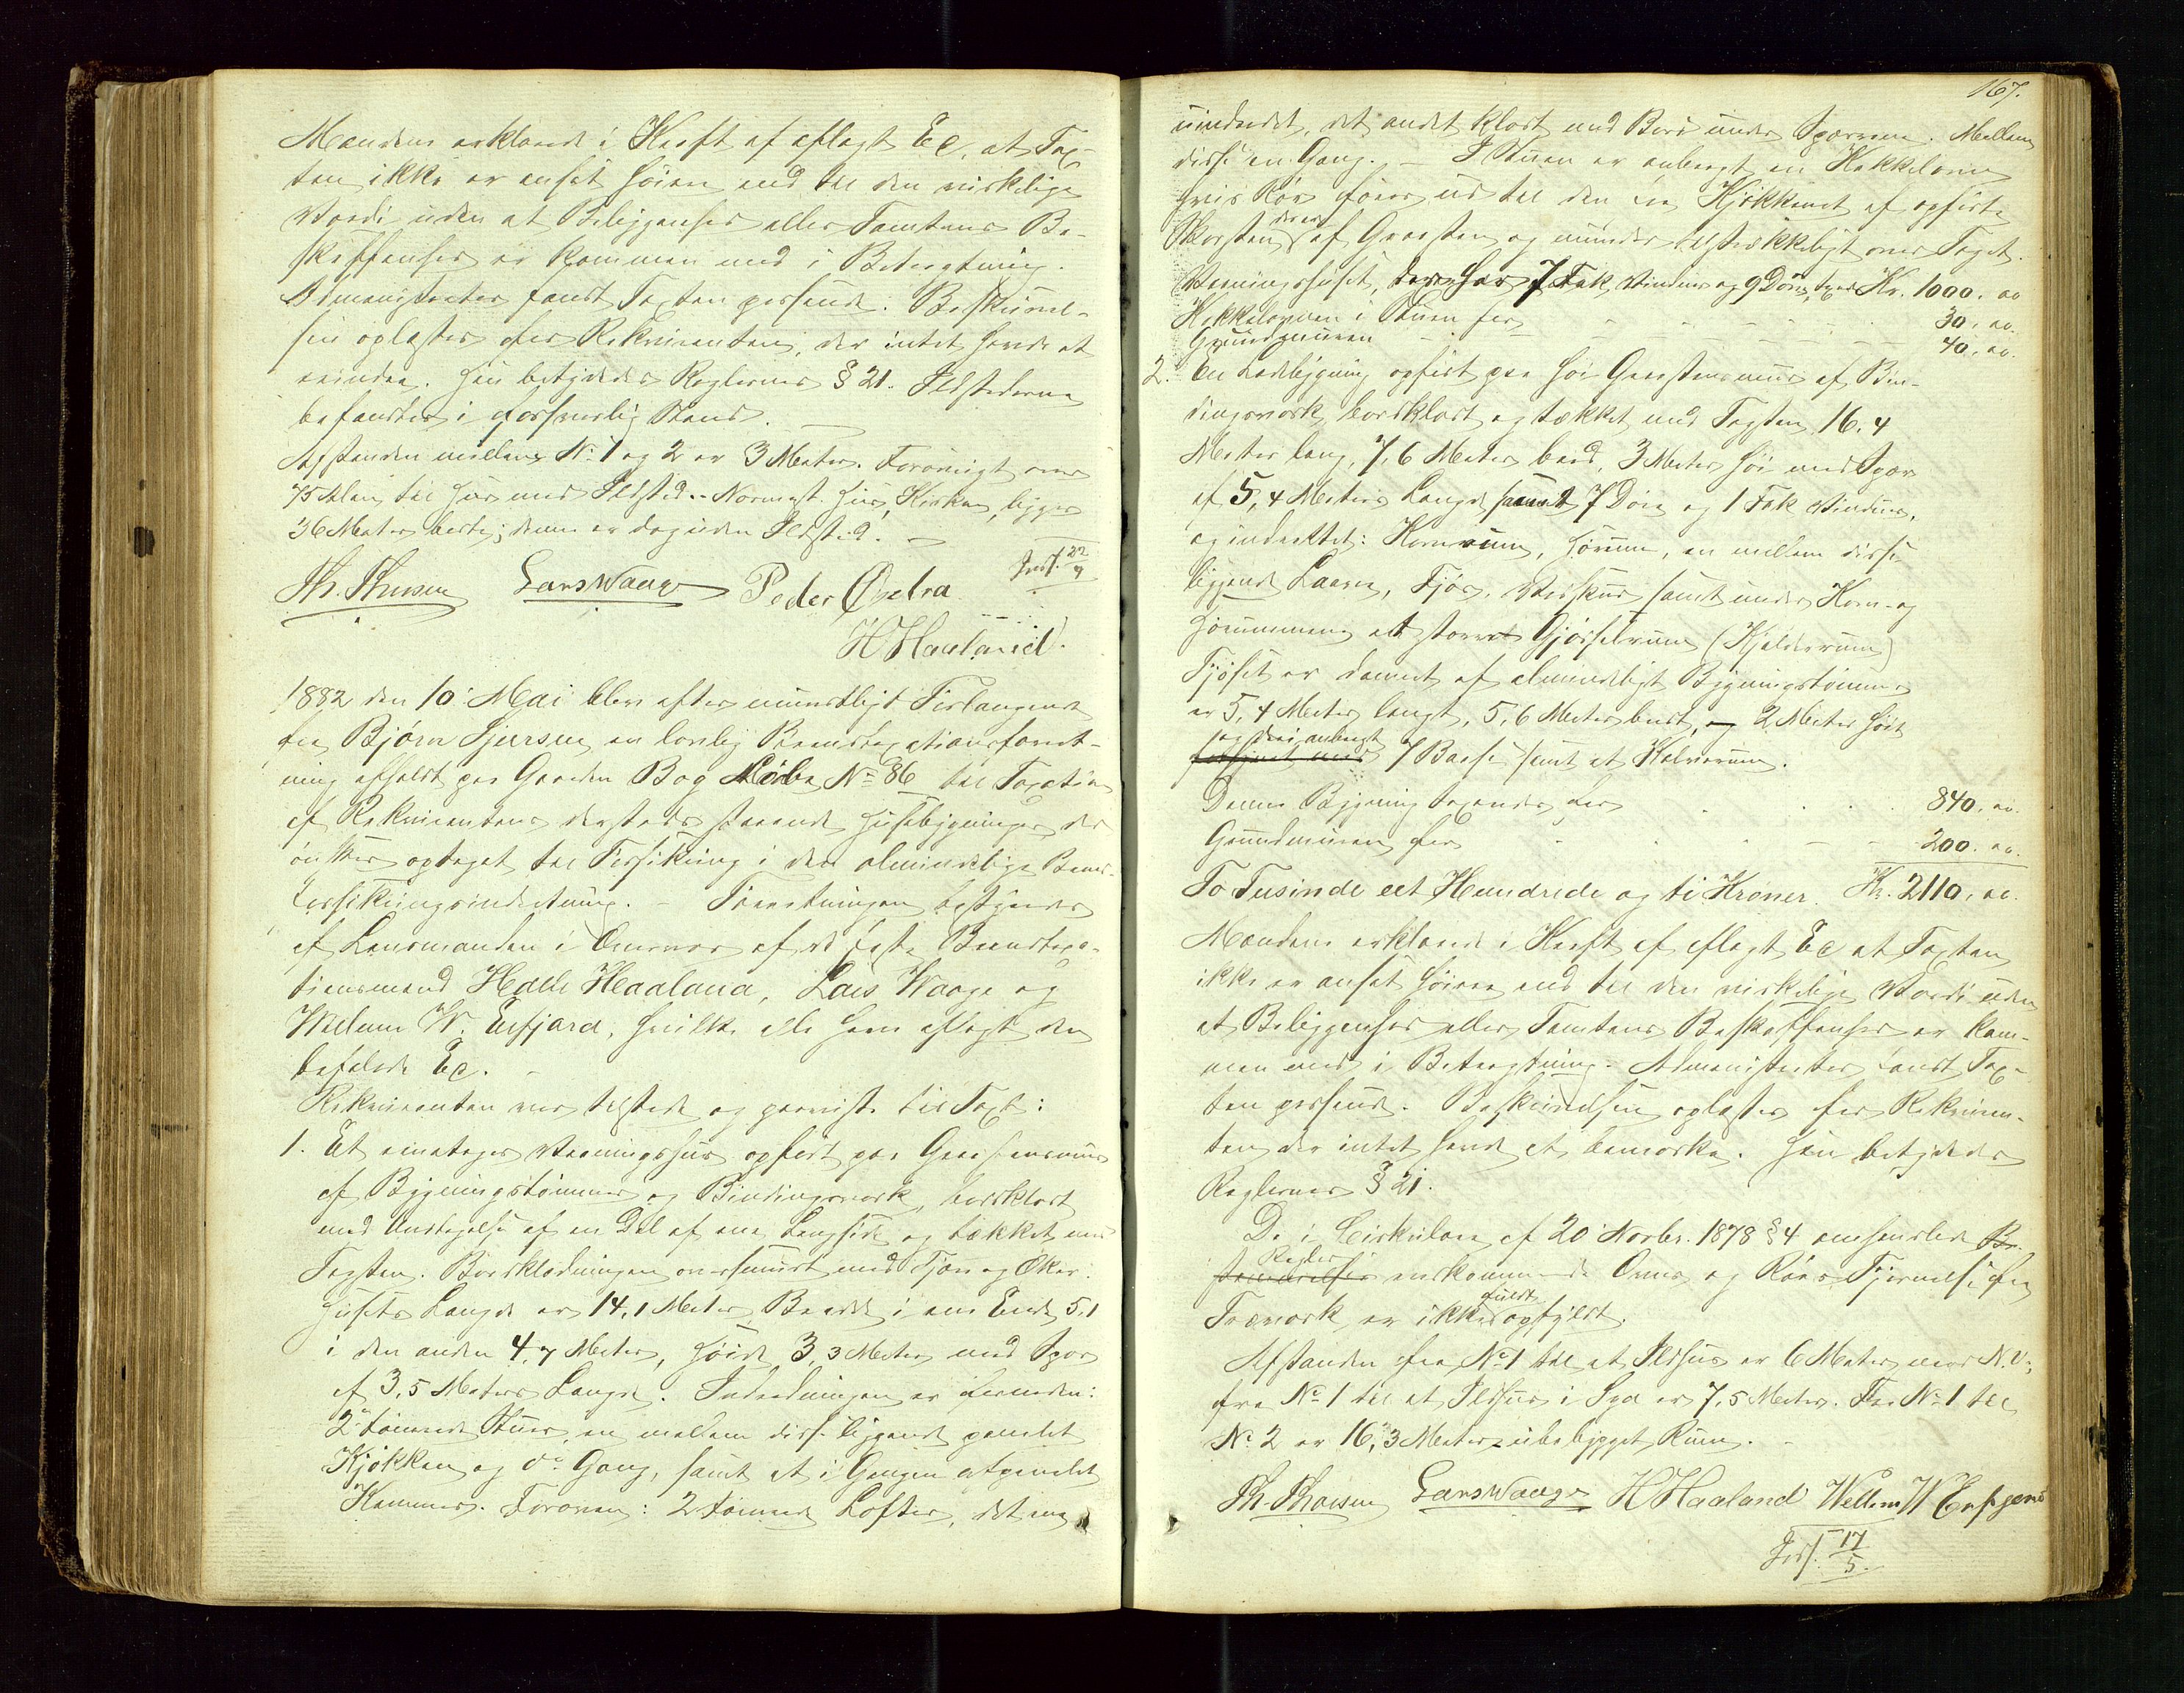 Mændene erklærede i Kraft af aflagt Ed, at Tax-
ten ikke er ansat høiere end til den virkelige
Værdi uden at Beliggenhed eller Tomtens Be-
skaffenhed er kommen med i Betragtning.
Administrator fandt Taxten passende. Beskrivel-
sen oplæstes for Rekvirenten, der intet havde at
erindre. Han betydedes Reglernes § 21. Ildstederne
befandtes i forsvarlig Stand.
Afstanden mellem No 1 og 2 er 3 Meter. Forøvrigt over
75 Alen til Hus med Ildsted. - Nærmest Hus, Kirken, ligger
36 Meter borte; denne er dog uden Ildsted. -
Indf. 22/9
Lars Waage Peder
H Haaland.
1882 den 10 Mai blev efter mundtligt Forlangende
fra Bjørn Sjursen en lovlig Brandtaxationsforret-
ning afholdt paa Gaarden Bog No 86 til Taxation
af Rekvirentens dersteds staaende Husebygninger der
ønskes optaget til Forsikring i den almindelige Brand-
forsikringsindretning. - Forretningen bestyredes
af Lensmanden i Overvær af de faste Brandtaxa-
tionsmænd Helle Haaland, Lars Waage og
Willum W. Erfjord, hvilke alle have aflagt den
befalede Ed. -
Rekvirenten var tilstede og paaviste til Taxt:
1. Et eenetages Vaaningshus opført paa Graastensmuur
af Bygningstømmer og Bindingsværk, bordklædt
med Undtagelse af en Del af ene Langside og tækket med
Tagsten. Bordklædningen oversmurt med Tjære og Oker.
Husets Længde er 14,1 Meter, Bredde i ene Ende 5,1
i den anden 4,7 Meter, Høide 3,3 Meter med Spær
af 3,5 Meters Længde. Indredningen er forneden:
2 tømrede Stuer, en mellem disse liggende panelet
Kjøkken og do Gang, samt et i Gangen afpanelet
Kammer. Foroven: 2 tømrede Lofter, det ene
167.
uindredet, det andet klædt med Bord under Spærrene. Mellem
disse en Gang. - I Stuen er anbragt en Kakkelovn
hvis Rør føres ud til den fra Kjøkkenet af opførte
Skorsten der er af Graasten og munder tilstrækkeligt over Taget.
Vaaningshuset, der har 7 Fak Vinduer og 9 Døre, Kr. 1000. oo
Kakkelovnen i Stuen for - - - - - 30. oo.
Grundmuren - - - - - 40. oo.
2. En Ladebygning opført paa høi Graastensmuur af Bin-
dingsværk, bordklædt og tækket med Tagsten, 16,4
Meter lang, 7,6 Meter bred, 3 Meter høi med Spær
af 5,4 Meters Længde samt 7 Døre og 1 Fak Vinduer,
og indrettet: Kornrum, Hørum, en mellem disse
liggende Laave, Fjøs, Vedskur samt under Korn- og
Hørummene et stort Gjødselrum (Kjelderrum)
Fjøset er dannet af almindeligt Bygningstømmer
er 5,4 Meter langt, 5,6 Meter bredt, og 2 Meter høit
og deri anbragt
7 Baase samt et Kalverum.
Denne Bygning taxeredes for . . . 840. oo.
Grundmuren for - - - 200. oo.
To Tusinde eet Hundrede og ti Kroner. Kr. 2110. oo.
Mændene erklærede i Kraft af aflagt Ed at Taxten
ikke er ansat høiere end til den virkelige Værdi uden
at Beliggenhed eller Tomtens Beskaffenhed er kom-
men med i Betragtning. - Administrator fandt Tax-
ten passende. Beskrivelsen oplæstes for Rekviren-
ten der intet havde at bemærke. Han betydedes
Reglernes § 21.
De i Cirkulære af 20 Novbr. 1878 § 4 omhandlede Be-
Regler
vedkommende Ovne og Rørs Fjernelse fra
Træværk er ikke fuldt opfyldt.
Afstanden fra No 1 til et Ildhus er 6 Meter mod N.V.,
fra No 1 til et Ildhus i Syd er 7,5 Meter. Fra No 1 til
No 2 er 16,3 Meter ubebygget Rum. -
Lars Waage H Haaland Willum W Erfjord
Indf. 17/5.